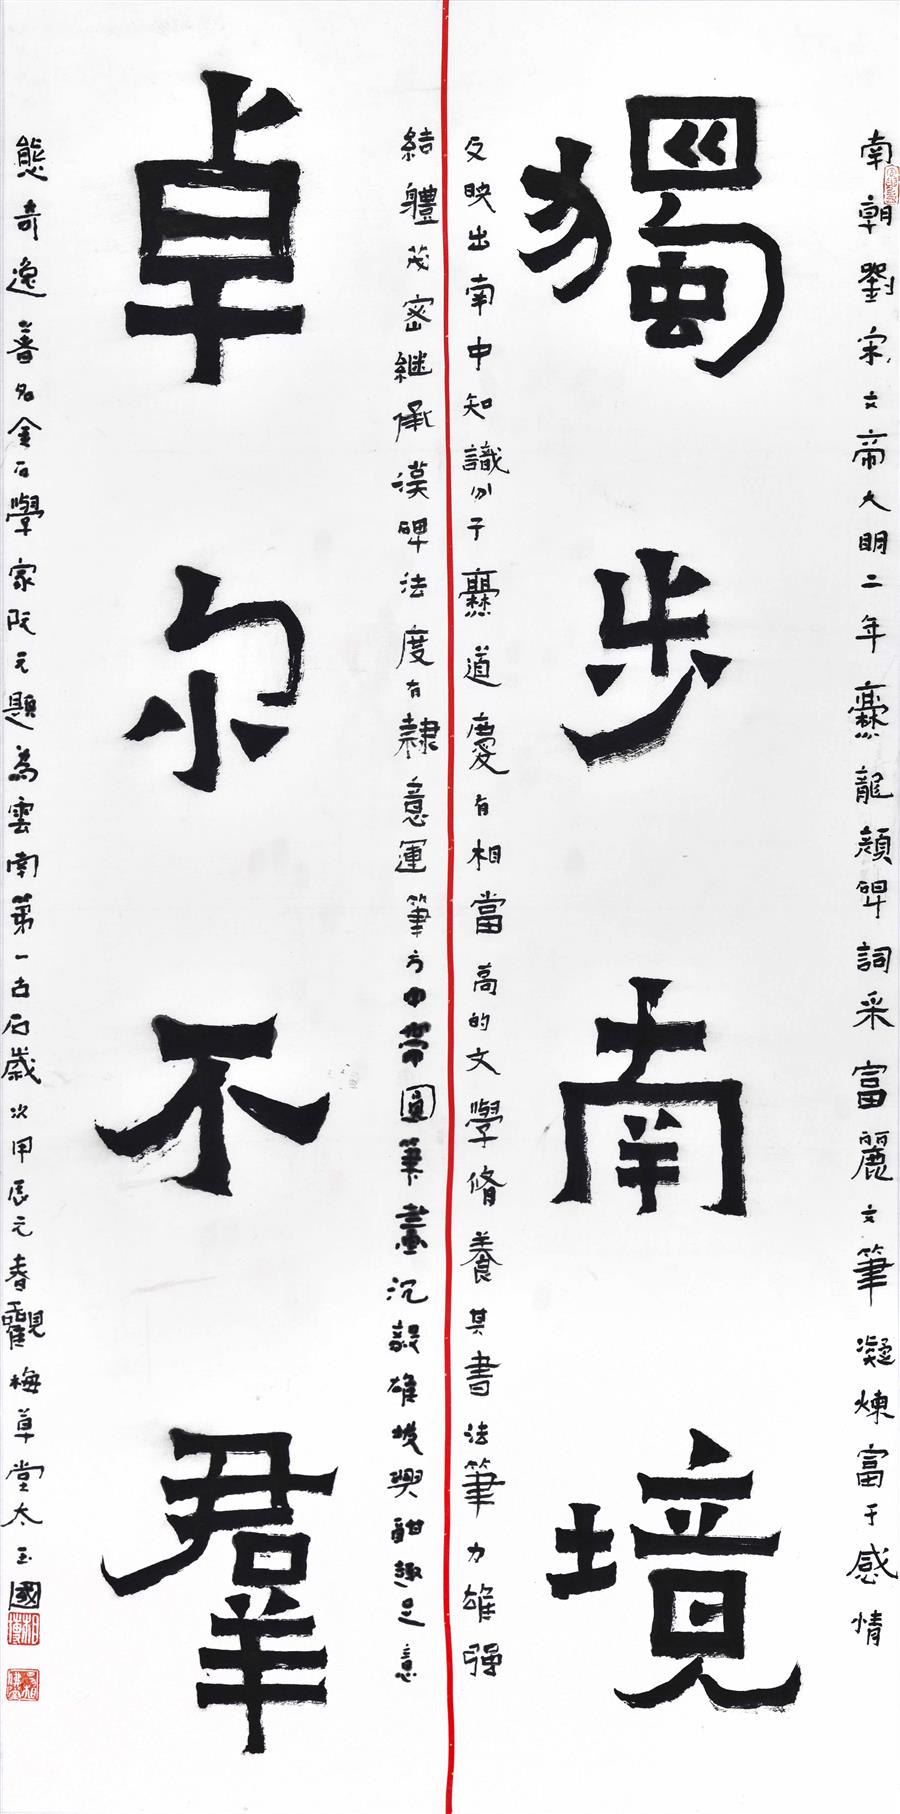 南朝劉宋文帝大明二年爨龍顔碑詞采富麗文筆凝煉富于感情
獨步南境
反映出南中知識分子爨道慶有相當高的文學脩養其書法筆力雄强
結體茂密继承漢碑法度有隸意運筆方中帶圓筆畫沉毅雄拔興酣趣足意
卓尔不羣
態奇逸著名金石學家阮元題為雲南第一古石歲次甲辰元春觀梅草堂太玉國